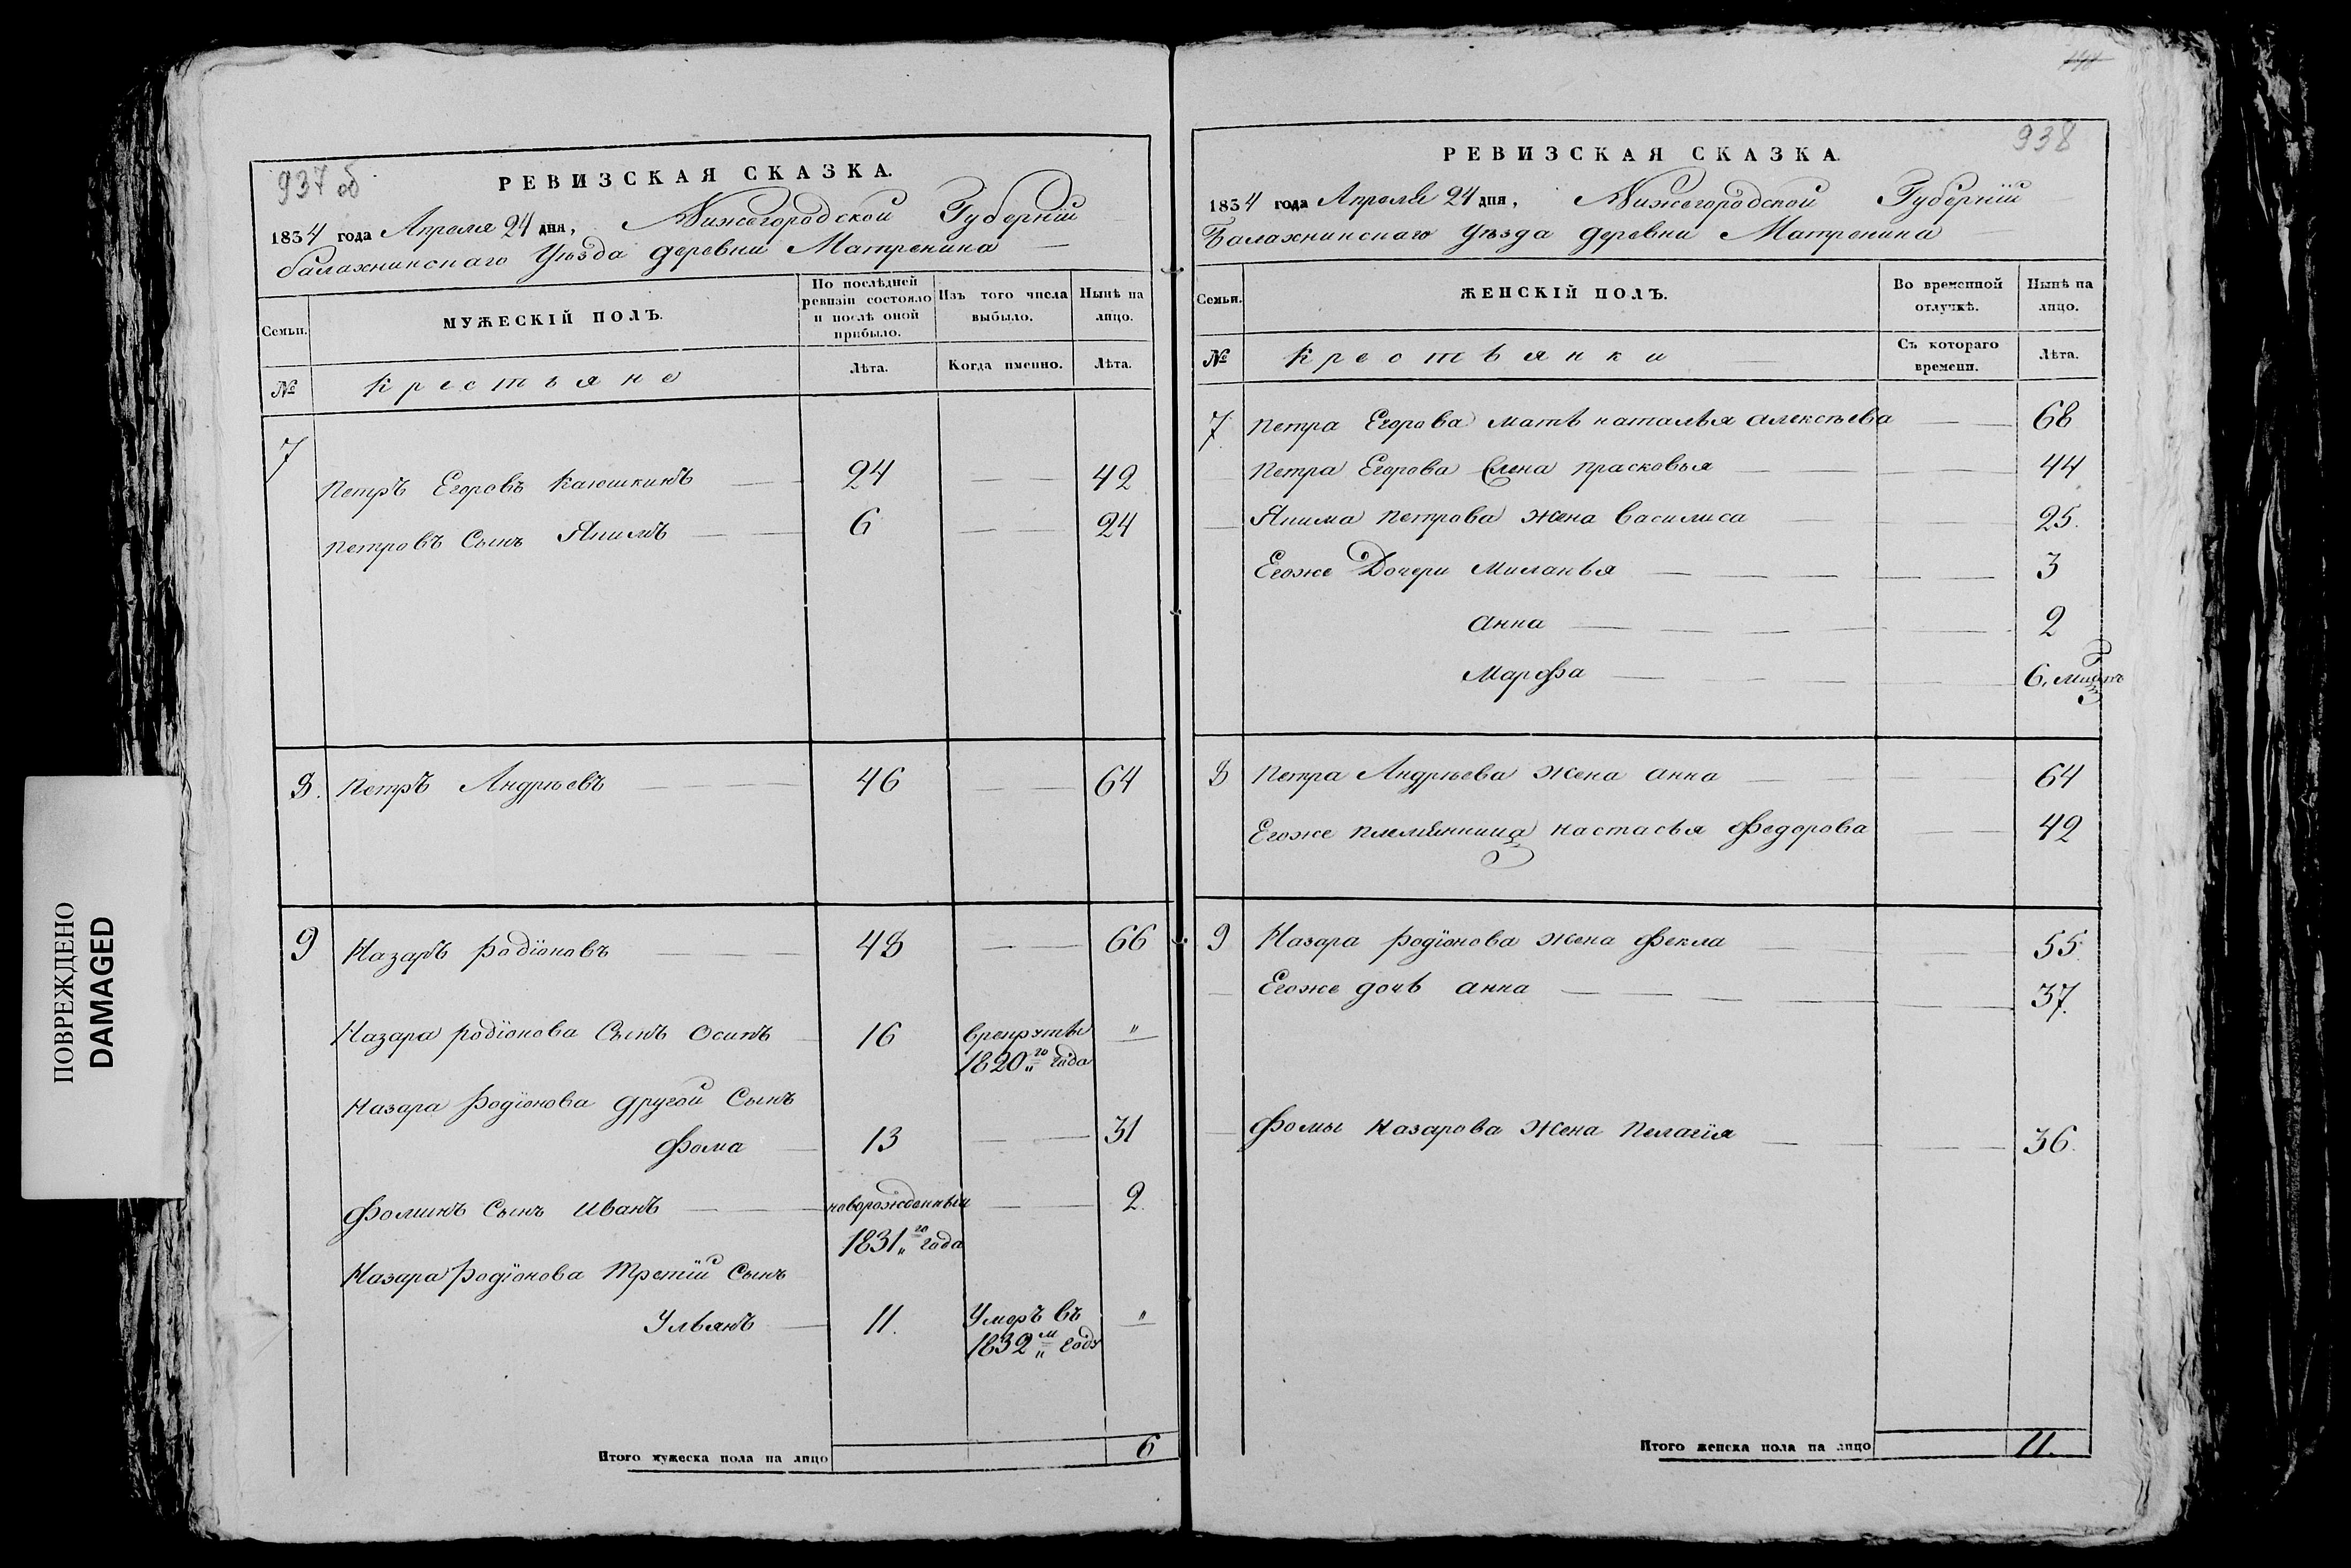 937 об
РЕВИЗСКАЯ СКАЗКА.
1834 года Апреля 24 дня, Нижегородской Губернїи
балахнинскаго Уѣзда деревни Матренина
Семьи.
МУЖЕСКІЙ ПОЛЪ.
По послѣдней ревизіи состояло и послѣ оной прибыло.
Изъ того числа выбыло.
Нынѣ на лицо.
№
Крестьяне
Лѣта.
Когда именно.
Лѣта.
7
Петръ Егоровъ Каюшкинъ 24 42
Петровъ Сынъ Якимъ 6 24
8. Петръ Андрѣевъ 46 64
9 Назаръ Родїоновъ 48 66
Назара родїонова Сынъ Осипъ 16 врекруты "
1820го года
Назара Родїонова другой Сынъ
Фома 13 31
Фоминъ Сынъ Иванъ новорожденный 2.
1831го года
Назара Родїонова Третїй Сынъ
Ульянъ 11. Умеръ въ "
1832м году
Итого мужеска пола на лицо 6
938
РЕВИЗСКАЯ СКАЗКА.
1834 года Апреля 24 дня, Нижегородской Губернїи
Балахнинскаго Уѣзда деревни Матренина
Семьи.
ЖЕНСКІЙ ПОЛЪ.
Во временной отлучкѣ.
Нынѣ на лицо.
№
Крестьянки
Съ котораго времени.
Лѣта.
7. Петра Егорова мать наталья алексѣева 68
Петра Егорова Жена прасковья 44
Якима Петрова жена Василиса 25.
Егоже Дочери Миланья 3
анна 2
Марфа 6,
8 Петра Андрѣева жена анна 64
Егоже племянница настасья Федорова 42
9 Назара родїонова жена Фекла 55.
Егоже дочь анна 37.
Фомы Назарова Жена Пелагїя 36.
Итого женска пола на лицо 11.
ПОВРЕЖДЕНО
DAMAGED